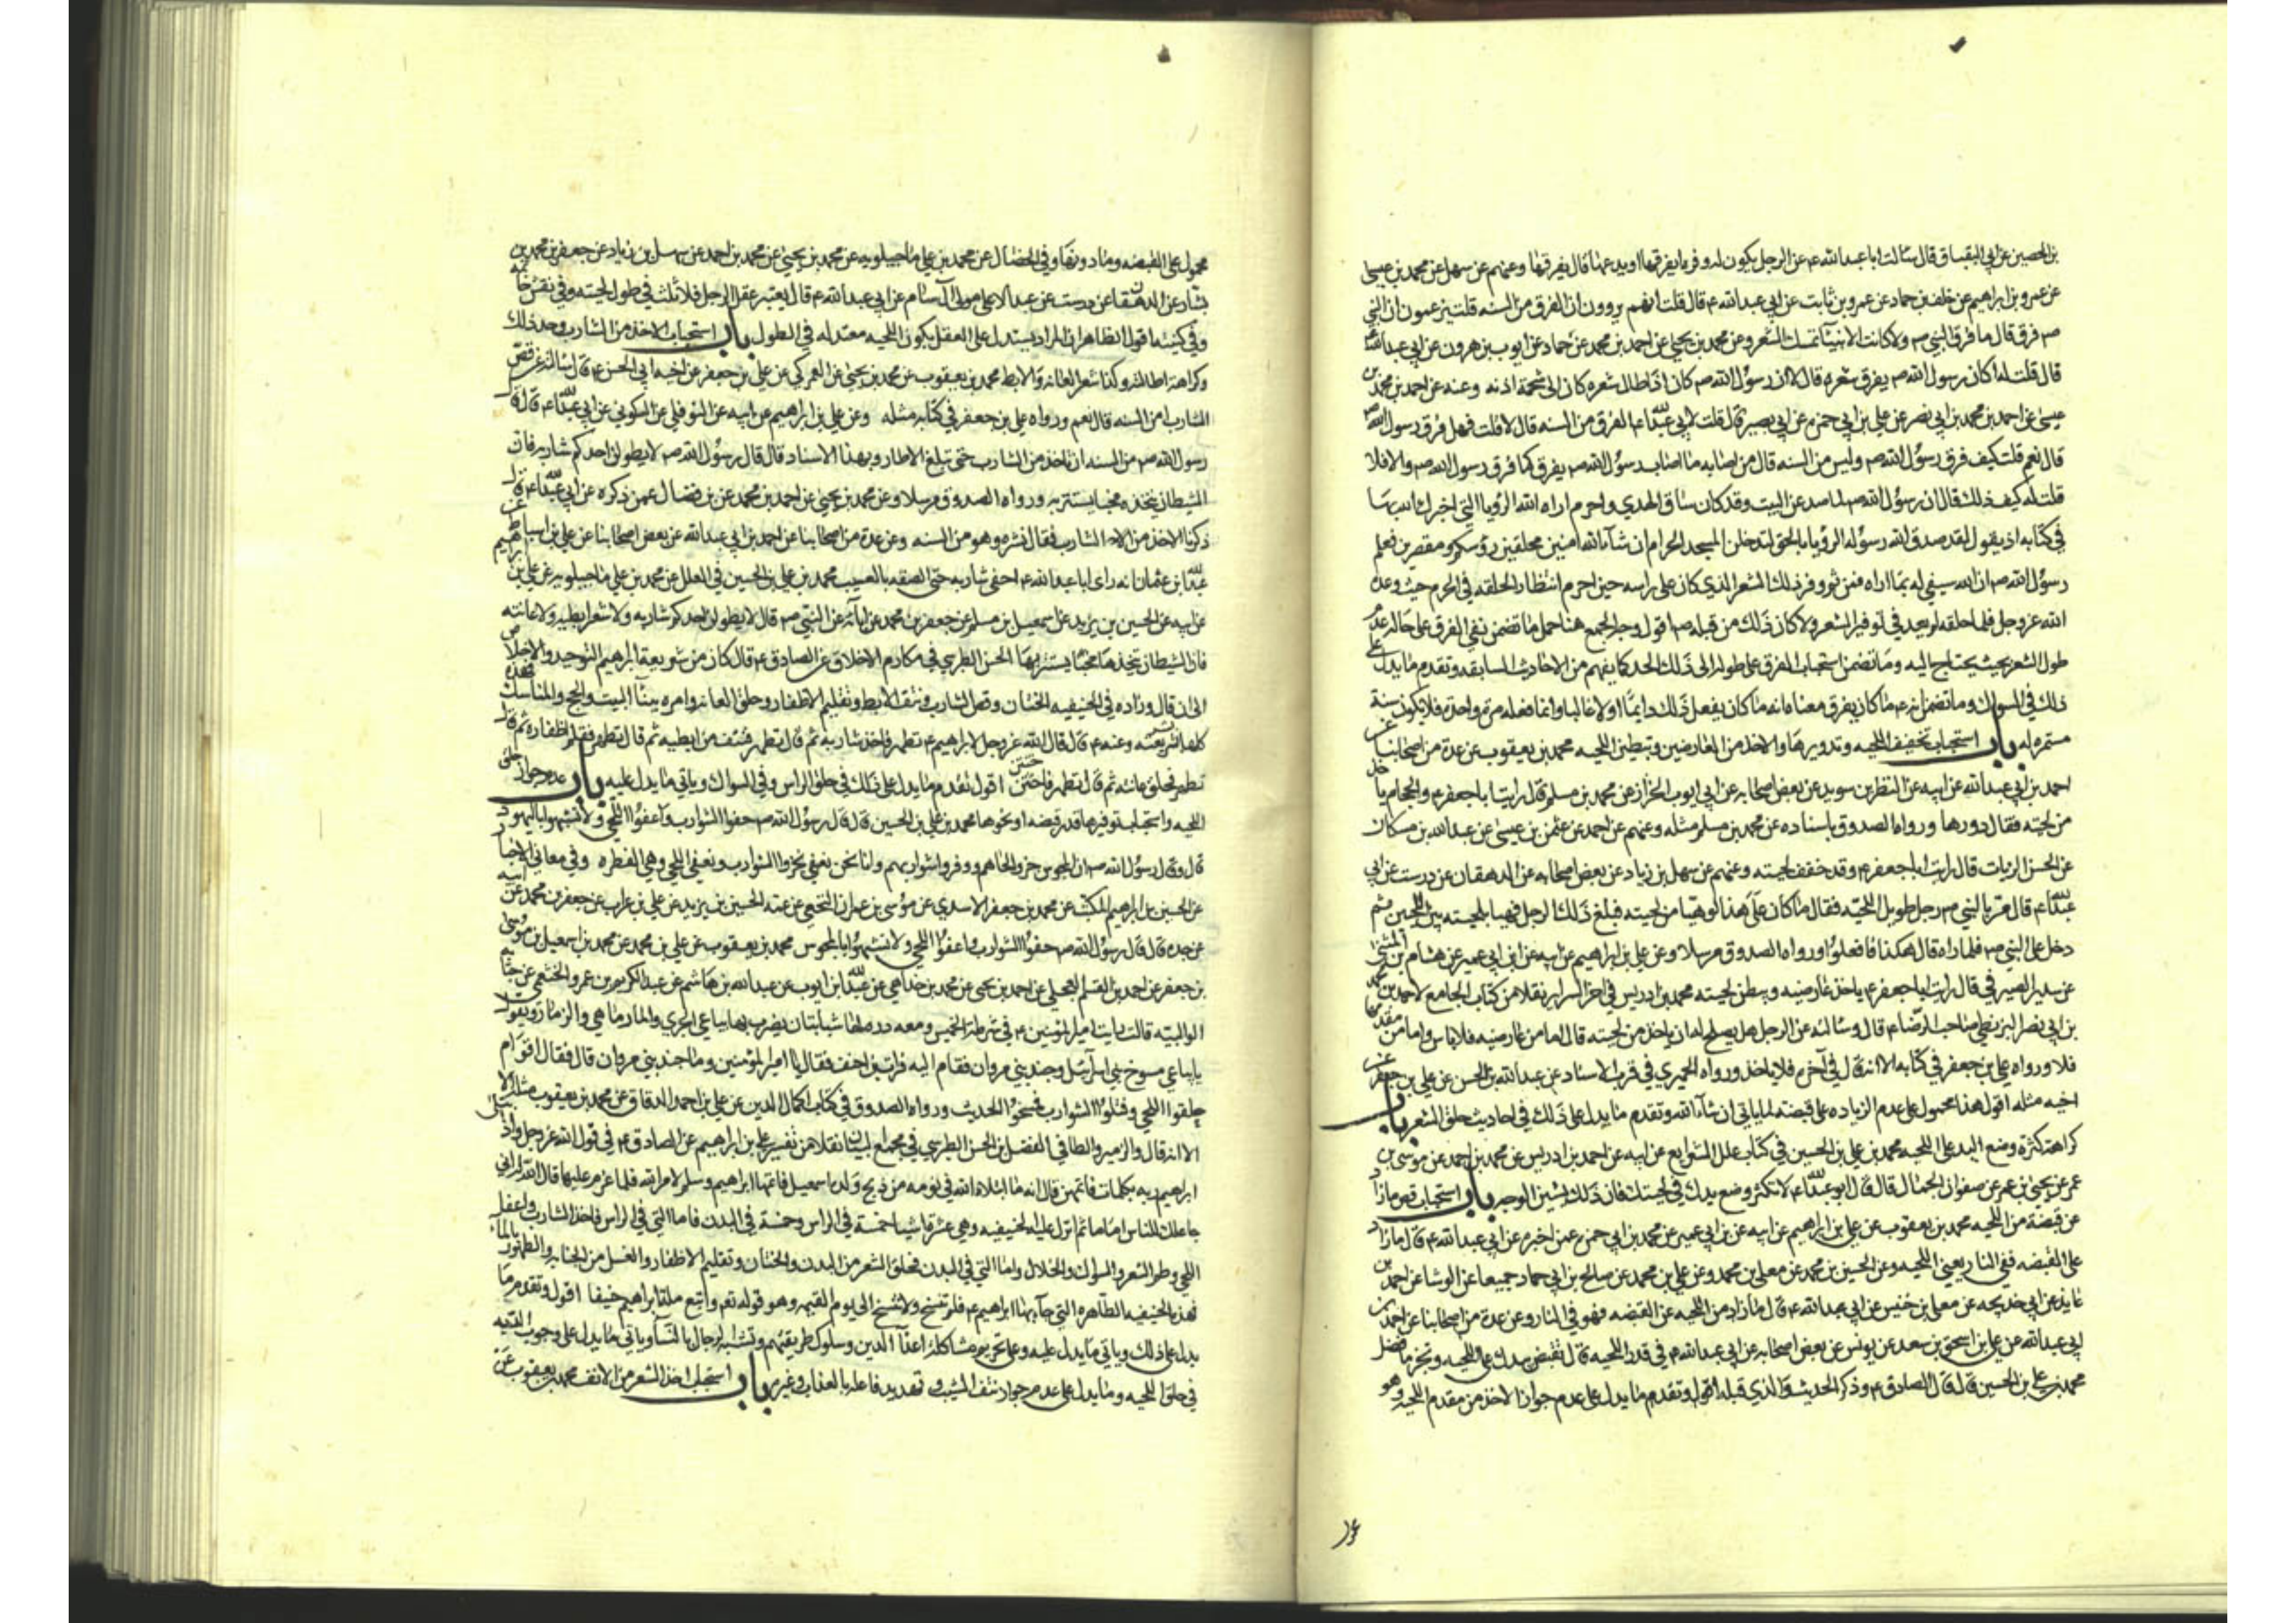 بن الحصين عن ابي العباس البقباق قال سالت ابا عبدالله ع عن الرجل يكون له وفرة ايفرقها او يدعها قال يفرقها وعنهم عن سهل عن محمد بن عيسى
عن عمرو بن ابراهيم عن خلف بن حماد عن عمرو بن ثابت عن ابي عبدالله ع قال قلت انهم يروون ان الفرق من السنه قلت يزعمون ان النبي
ص فرق قال ما فرق النبي ص ولا كانت الانبيا تمسك الشعر وعن محمد بن يحيى عن احمد بن محمد عن حماد عن ايوب بن هرون عن ابي عبدالله ع
قال قلت له اكان رسول الله ص يفرق شعره قال لا ان رسول الله ص كان اذا طال شعره كان الى شحمة اذنه وعنه عن احمد بن محمد بن
عيسى عن احمد بن محمد بن ابي نصر عن علي بن ابي حمزه عن ابي بصير قال قلت لابي عبدالله ع الفرق من السنه قال لا قلت فهل فرق رسول الله ص
قال نعم قلت كيف فرق رسول الله ص وليس من السنه قال من اصابه ما اصاب رسول الله ص يفرق كما فرق رسول الله ص والا فلا
قلت له كيف ذلك قال ان رسول الله ص لما صد عن البيت وقد كان ساق الهدي واحرم اراه الله الرؤيا التي اخبرك الله بها
في كتابه اذ يقول لقد صدق الله رسوله الرؤيا بالحق لتدخلن المسجد الحرام ان شآء الله امنين محلقين رؤسكم ومقصرين فعلم
رسول الله ص ان الله سيفي له بما اراه فمن ثم وفر ذلك الشعر الذي كان على راسه حين احرم انتظارا لحلقه في الحرم حيث وعده
الله عز وجل فلما حلقه لم يعد في توفير الشعر ولا كان ذلك من قبله ص اقول وجه الجمع هنا حمل ما تضمن نفي الفرق على حاله عدم
طول الشعر بحيث يحتاج اليه وما تضمن استحباب الفرق على طوله الى ذلك الحد كما يفهم من الاحاديث السابقه وتقدم ما يدل على
ذلك في السواك وما تضمن انه ع ما كان يفرق معناه انه ما كان يفعل ذلك دايما او لا غالبا وانما فعله مره واحدة فلا يكون سنة
مستمره له باب استحباب تخفيف اللحيه وتدويرها والاخذ من العارضين وتبطين اللحيه محمد بن يعقوب عن عدة من اصحابنا عن
احمد بن ابي عبدالله عن ابيه عن النظر بن سويد عن بعض اصحابه عن ابي ايوب الخزاز عن محمد بن مسلم قال رايت ابا جعفر ع والحجام ياخذ
من لحيته فقال دورها ورواه الصدوق باسناده عن محمد بن مسلم مثله وعنهم عن احمد عن عثمن بن عيسى عن عبدالله بن مسكان
عن الحسن الزيات قال رايت ابا جعفر ع وقد خفف لحيته وعنهم عن سهل بن زياد عن بعض اصحابه عن الدهقان عن درست عن ابي
عبدالله ع قال مر بالنبي ص رجل طويل اللحيه فقال ما كان على هذا لو هيا من لحيته فبلغ ذلك الرجل فهيا بلحيته بين اللحيتين ثم
دخل على النبي ص فلما راه قال هكذا فافعلوا ورواه الصدوق مرسلا وعن علي بن ابراهيم عن ابيه عن ابن ابي عمير عن هشام بن المثنى
عن سدير الصيرفي قال رايت ابا جعفر ع ياخذ عارضيه ويبطن لحيته محمد بن ادريس في اخر السراير نقلا من كتاب الجامع لاحمد بن محمد
بن ابي نصر البزنطي صاحب الرضا ع قال وسالته عن الرجل هل يصلح له ان ياخذ من لحيته قال اما من عارضيه فلا باس واما من مقدمها
فلا ورواه علي بن جعفر في كتابه الا انه قال في آخره فلا ياخذ ورواه الحميري في قرب الاسناد عن عبدالله بن الحسن عن علي بن جعفر عن
اخيه مثله اقول هذا محمول على عدم الزياده على قبضته لما ياتي ان شآء الله وتقدم ما يدل على ذلك في احاديث حلق الشعر باب
كراهة كثرة وضع اليد على اللحيه محمد بن علي بن الحسين في كتاب علل الشرايع عن ابيه عن احمد بن ادريس عن محمد بن احمد عن موسى بن
عمر عن يحيى بن عمر عن صفوان الجمال قال قال ابو عبدالله ع لا تكثر وضع يدك في لحيتك فان ذلك يشين الوجه باب استحباب قص ما زاد
عن قبضة من اللحيه محمد بن يعقوب عن علي بن ابراهيم عن ابيه عن بن ابي عمير عن محمد بن ابي حمزه عمن اخبره عن ابي عبدالله ع قال ما زاد
على القبضه ففي النار يعني اللحيه وعن الحسين بن محمد عن معلى بن محمد وعن علي بن محمد عن صالح بن ابي حماد جميعا عن الوشا عن احمد بن
عايذ عن ابي خديجه عن معلى بن خنيس عن ابي عبدالله ع قال ما زاد من اللحيه عن القبضه فهو في النار وعن عدة من اصحابنا عن احمد بن
ابي عبدالله عن علي بن اسحق بن سعد عن يونس عن بعض اصحابه عن ابي عبدالله ع في قدر اللحيه قال تقبض بيدك على اللحيه وتجز ما فضل
محمد بن علي بن الحسين قال قال الصادق ع وذكر الحديث والذي قبله اقول وتقدم ما يدل على عدم جواز الاخذ من مقدم اللحيه وهو
محمول على القبضه وما دونها وفي الخصال عن محمد بن علي ماجيلويه عن محمد بن يحيى عن محمد بن احمد عن سهل بن زياد عن جعفر بن محمد بن
بشار عن الدهقان عن درست عن عبد الاعلى مولى آل سام عن ابي عبدالله ع قال يعتبر عقل الرجل في ثلاث في طول لحيته وفي نقش خاتمه
وفي كنيته اقول الظاهر ان المراد يستدل على العقل بكون اللحيه معتدله في الطول باب استحباب الاخذ من الشارب وحد ذلك
وكراهة اطالته وكذا شعر العانه والابط محمد بن يعقوب عن محمد بن يحيى عن العمركي عن علي بن جعفر عن اخيه ابي الحسن ع قال سالته عن قص
الشارب امن السنه قال نعم ورواه علي بن جعفر في كتابه مثله وعن علي بن ابراهيم عن ابيه عن النوفلي عن السكوني عن ابي عبدالله ع قال قال
رسول الله ص من السنه ان تاخذ من الشارب حتى تبلغ الاطار وبهذا الاسناد قال قال رسول الله ص لا يطولن احدكم شاربه فان
الشيطان يتخذه مخبا يستتر به ورواه الصدوق مرسلا وعن محمد بن يحيى عن احمد بن محمد عن بن فضال عمن ذكره عن ابي عبدالله ع قال
ذكرنا الاخذ من الشارب فقال نشره وهو من السنه وعن عدة من اصحابنا عن احمد بن ابي عبدالله عن بعض اصحابنا عن علي بن اسباط عن
عبدالله بن عثمان انه راى ابا عبدالله ع احفى شاربه حتى الصقه بالعسيب محمد بن علي بن الحسين في العلل عن محمد بن علي ماجيلويه عن علي بن ابراهيم
عن ابيه عن الحسين بن يزيد عن اسمعيل بن مسلم عن جعفر بن محمد عن ابآئه عن النبي ص قال لا يطولن احدكم شاربه ولا شعر ابطيه ولا عانته
فان الشيطان يتخذها مخبا يستتر بها الحسن الطبرسي في مكارم الاخلاق عن الصادق ع قال كان من شريعة ابراهيم التوحيد والاخلاص
الى ان قال وزاده في الحنيفيه الختان وقص الشارب ونتف الابط وتقليم الاظفار وحلق العانه وامره ببنآء البيت والحج والمناسك فهذه
كلها شريعته وعنه ع قال قال الله عز وجل لابراهيم ع تطهر فاخذ شاربه ثم قال تطهر فنتف من ابطيه ثم قال تطهر فقلم اظفاره ثم قال
تطهر فحلق عانته ثم قال تطهر فاختتن اقول تقدم ما يدل على ذلك في حلق الراس وفي السواك وياتي ما يدل عليه باب عدم جواز حلق
اللحيه واستحباب توفيرها قدر قبضه او نحوها محمد بن علي بن الحسين قال قال رسول الله ص حفوا الشوارب واعفوا اللحي ولا تشبهوا باليهود
قال وقال رسول الله ص ان المجوس جزوا لحاهم ووفروا شواربهم وانا نحن نجز الشوارب ونعفي اللحي وهي الفطره وفي معاني الاخبار
عن الحسين بن ابراهيم المكتب عن محمد بن جعفر الاسدي عن موسى بن عمران النخعي عن عمه الحسين بن يزيد عن علي بن غراب عن جعفر بن محمد عن ابيه
عن جده قال قال رسول الله ص حفوا الشوارب واعفوا اللحي ولا تشبهوا بالمجوس محمد بن يعقوب عن علي بن محمد عن محمد بن اسمعيل بن موسى
بن جعفر عن احمد بن القسم العجلي عن احمد بن يحيى عن محمد بن خداهي عن عبدالله بن ايوب عن عبدالله بن هاشم عن عبدالكريم بن عمرو الخثعمي عن حبابه
الوالبيه قالت رايت امير المومنين ع في شرطة الخميس ومعه دره لها سبابتان يضرب بها بياعي الجري والمارماهي والزمار ويقول لهم
يا بياعي مسوخ بني اسرآئيل وجند بني مروان فقام اليه فرات بن احنف فقال يا امير المؤمنين وما جند بني مروان قال فقال اقوام
حلقوا اللحي وفتلوا الشوارب فمسخوا الحديث ورواه الصدوق في كتاب اكمال الدين عن علي بن احمد الدقاق عن محمد بن يعقوب مثله
الا انه قال والزمير والطافي الفضل بن الحسن الطبرسي في مجمع البيان نقلا من تفسير علي بن ابراهيم عن الصادق ع في قول الله عز وجل واذ ابتلى
ابراهيم ربه بكلمات فاتمهن قال انه ما ابتلاه الله في نومه من ذبح ولده اسمعيل فاتمها ابراهيم وسلم لامر الله فلما عزم عليها قال الله اني
جاعلك للناس اماما ثم انزل عليه الحنيفيه وهي عشرة اشيا خمسة في الراس وخمسة في البدن فاما التي في الراس فاخذ الشارب واعفا
اللحي وطم الشعر والسواك والخلال واما التي في البدن فحلق الشعر من البدن والختان وتقليم الاظفار والغسل من الجنابه والطهور بالمآء
فهذه الحنيفيه الطاهره التي جآء بها ابراهيم ع فلم تنسخ ولا تنسخ الى يوم القيمه وهو قوله تعم واتبع ملة ابراهيم حنيفا اقول وتقدم ما
يدل على ذلك وياتي ما يدل عليه وعلى تحريم مشاكلة اعدآء الدين وسلوك طريقتهم وتشبه الرجال بالنسآء وياتي ما يدل على وجوب الديه
في حلق اللحيه وما يدل على عدم جواز نتف الشيب وتهديد فاعله بالعذاب وغيره باب استحباب اخذ الشعر من الانف محمد بن يعقوب عن